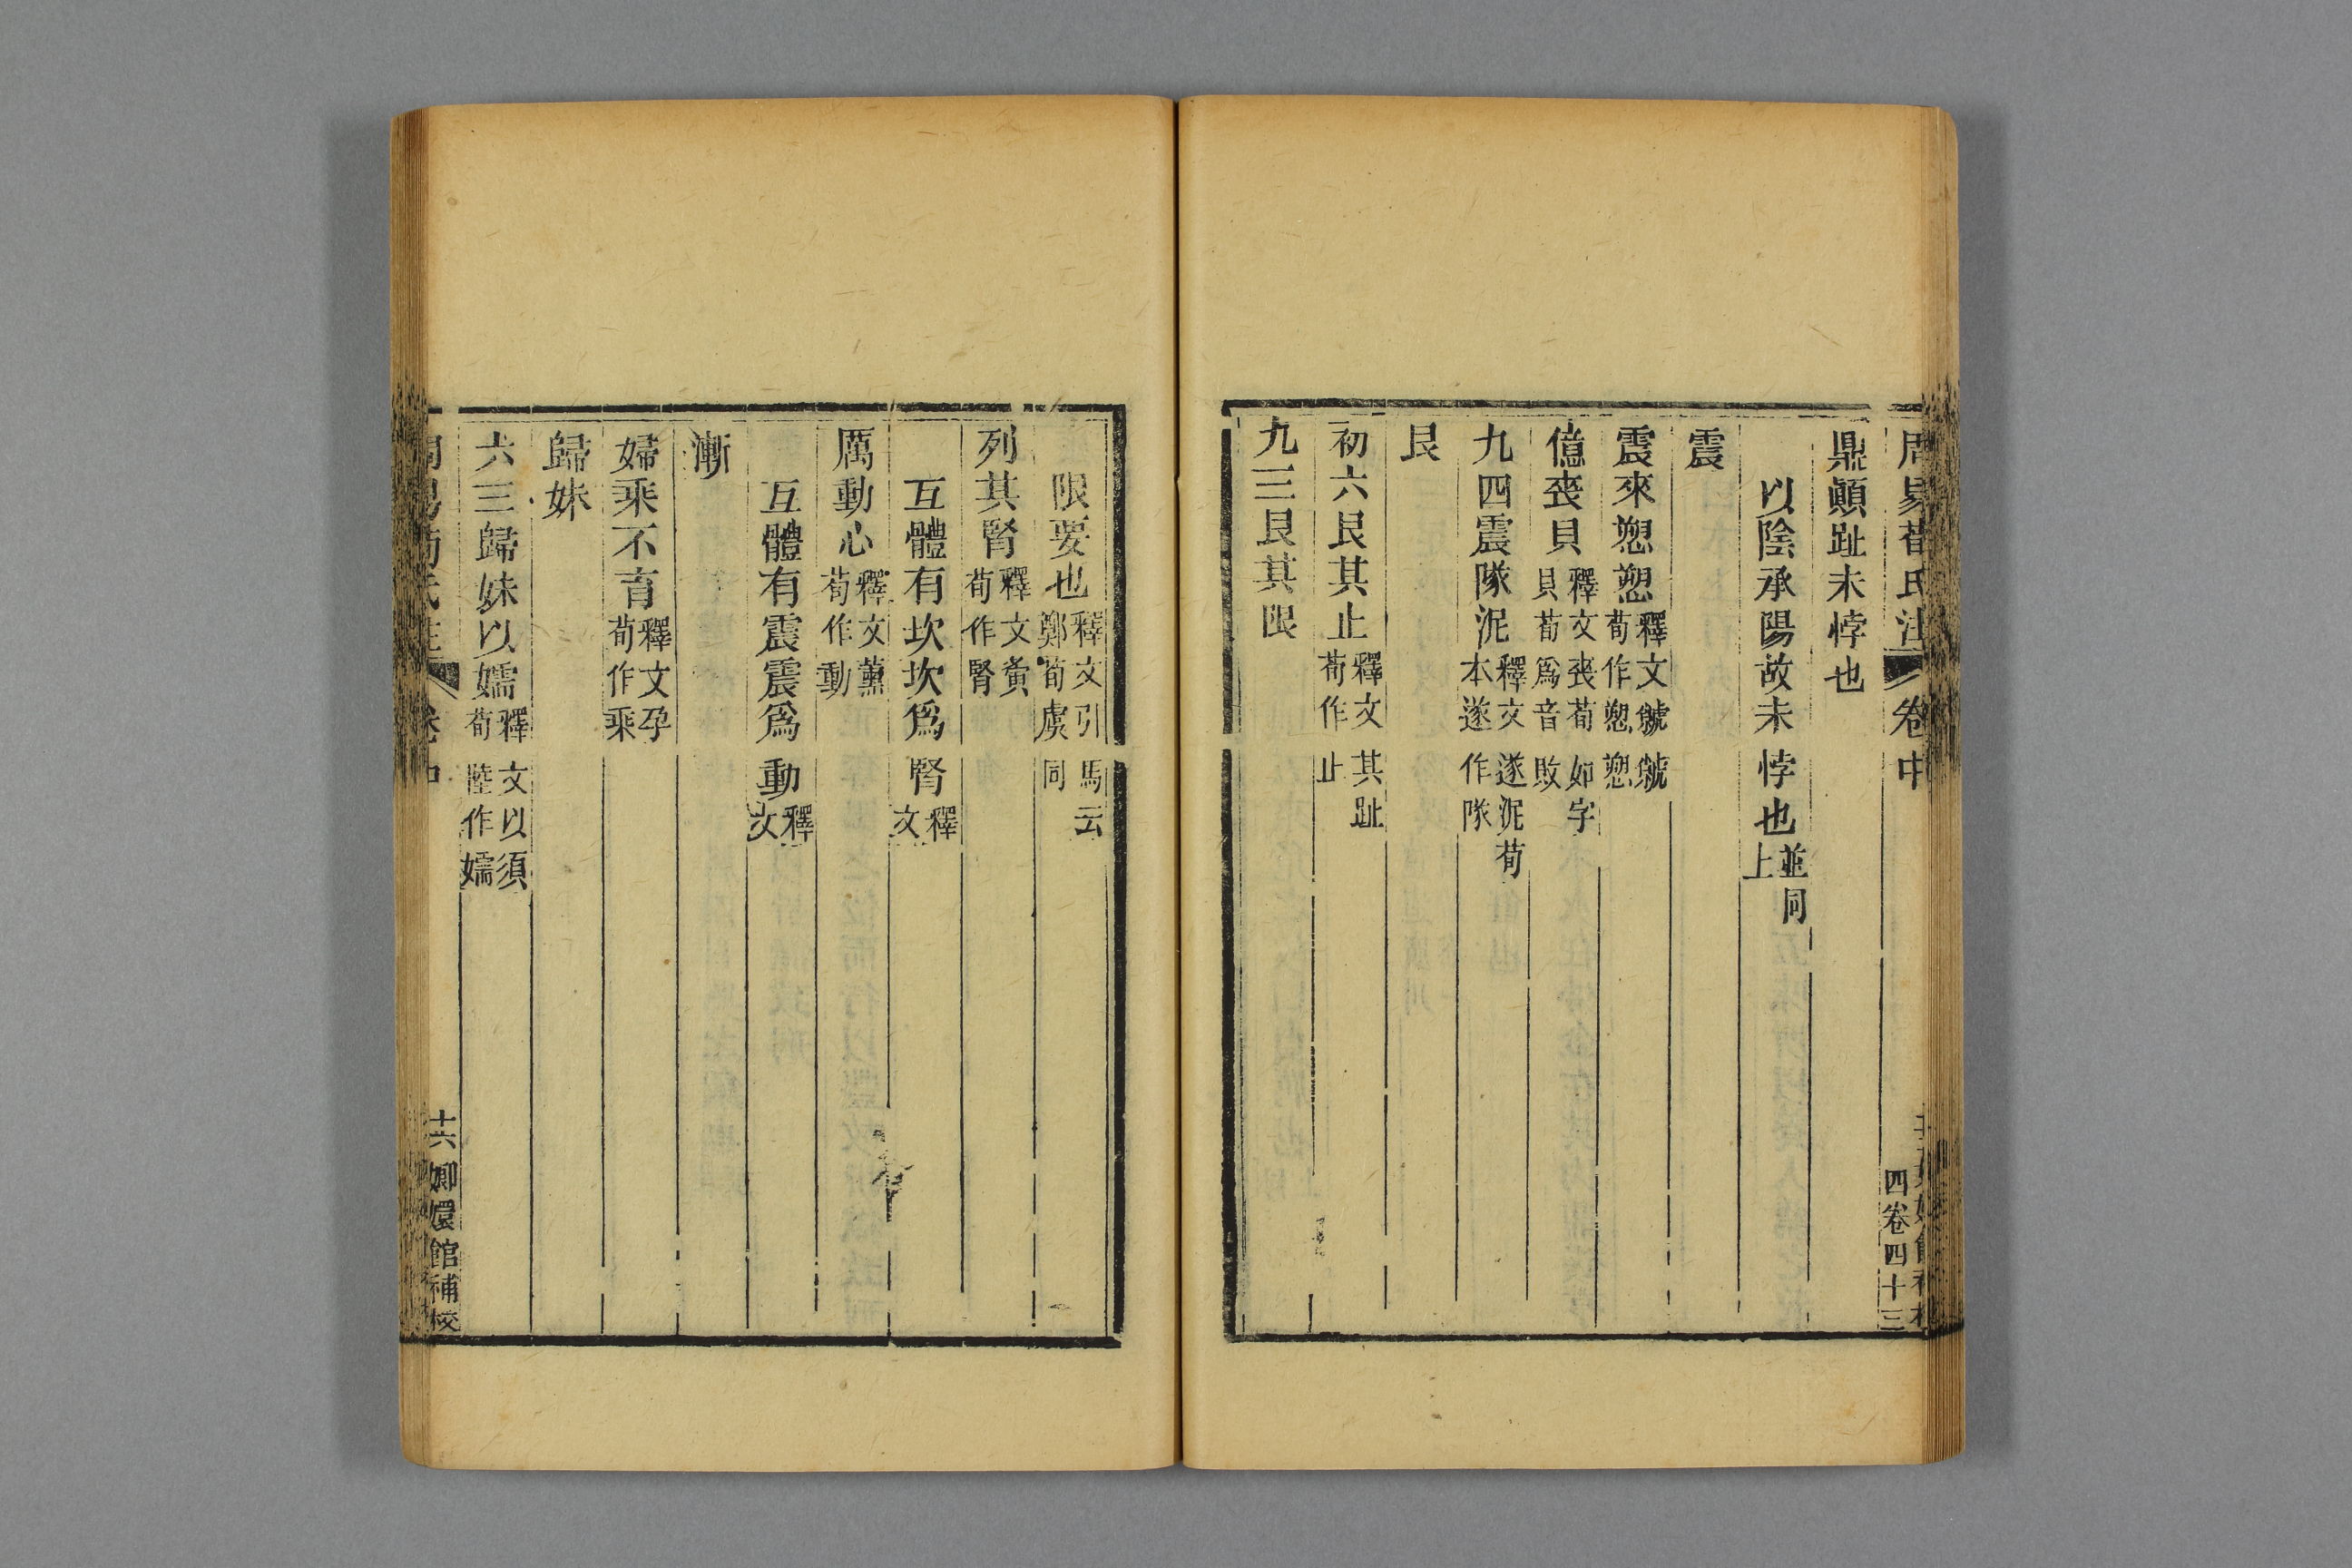 周易荀氏注 卷中
四卷四十三
鼎顚趾未悖也
以陰承陽故未悖也並同上
震
震來愬愬釋文虩虩荀作愬愬
億喪貝釋文喪荀如字貝荀爲音敗
九四震隊泥釋文遂泥荀本遂作隊
艮
初六艮其止釋文其趾荀作止
九三艮其限
限要也釋文引馬云鄭荀虞同
列其腎釋文夤荀作腎
互體有坎坎爲腎釋文
厲動心釋文薰荀作動
互體有震震爲動釋文
漸
婦乘不育釋文孕荀作乘
歸妹
六三歸妹以嬬釋文以須荀陸作嬬
周易荀氏注 卷中
十六 嫏嬛館補校